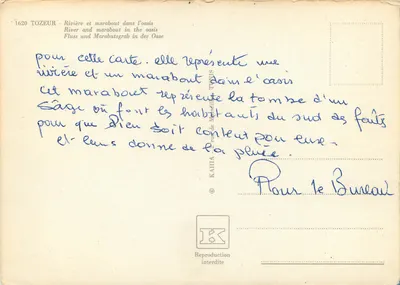 1620 TOZEUR - Rivière et marabout dans l'oasis
River and marabout in the oasis
Fluss und Marabutsgrab in der Oase
pour cette carte. elle représente une
rivière et un marabout dans l'oasis
cet marabout représente la tombe d'un
sâge où font les habitants du sud des fêtes
pour que Dieu soit content pour eux.
et leurs donne de la pluie.
Pour le Bureau
© KAHIA
TUNIS
K
Reproduction
interdite